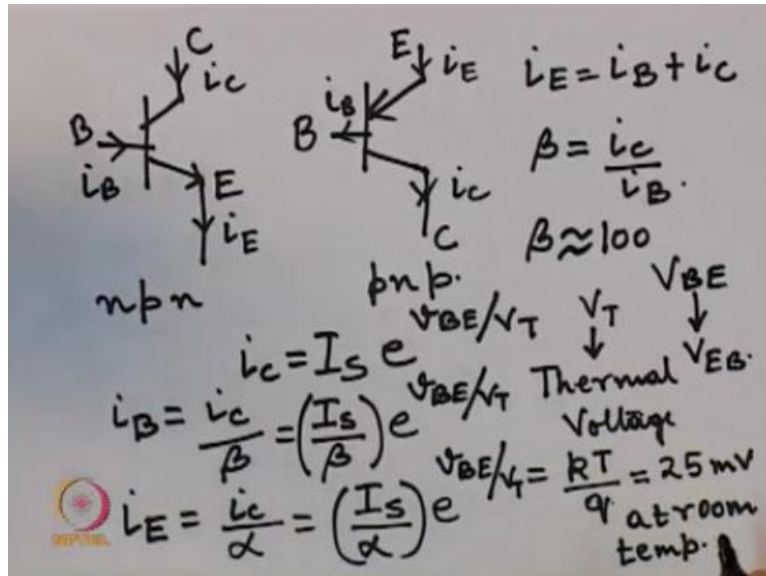 C
i_C
B
i_B
E
i_E
npn
E
i_E
i_B
B
i_C
C
pnp.
i_E = i_B + i_C
β = i_C / i_B.
β ≈ 100
V_BE
↓
V_EB.
V_T
↓
Thermal
Voltage
i_C = I_S e^{v_BE/V_T}
i_B = i_C/β = (I_S/β) e^{v_BE/V_T}
i_E = i_C/α = (I_S/α) e^{v_BE/V_T}
= kT/q = 25 mV
at room
temp.
NPTEL